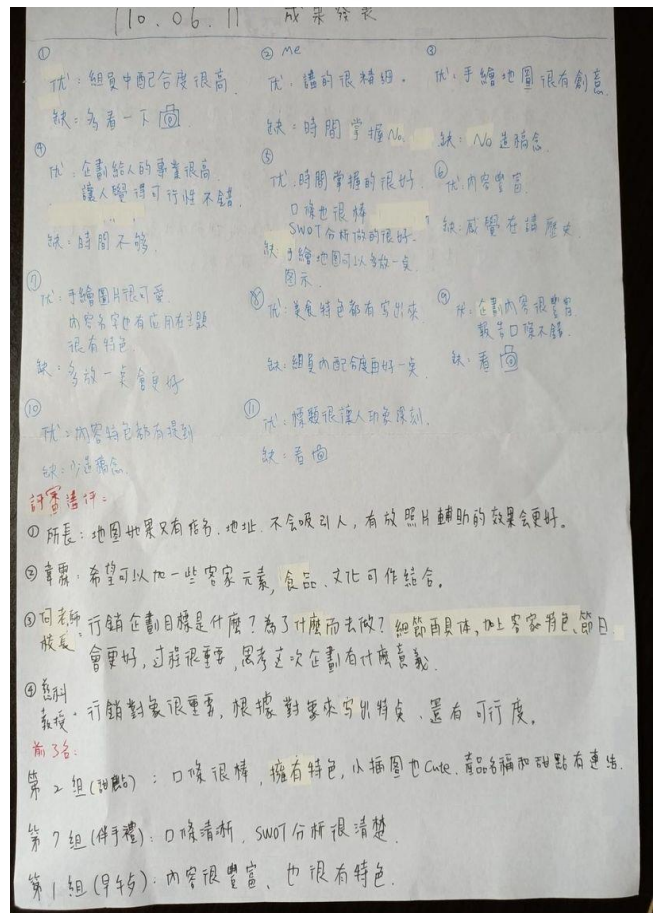 110.06.11 成果發表
①
优：組員中配合度很高.
缺：多看一下
② Me
优：講的很精細。
缺：時間掌握No.
③
优：手繪地圖很有創意
缺：No 造稿念.
④
优：企劃給人的專業很高.
讓人覺得可行性不錯.
缺：時間不够
⑤
优：時間掌握的很好.
口條也很棒
SWOT分析做的很好.
缺：手繪地图可以多放一点
图示.
⑥
优：內容豐富.
缺：感覺在講歷史
⑦
优：手繪圖片很可愛.
內容名字也有应用在主題
很有特色.
缺：多放一点會更好
⑧
优：美食特色都有写出來
缺：組員內配合度再好一点.
⑨
优：企劃內容很豐富
報告口條不錯.
缺：看
⑩
优：內容特色都有提到
缺：少造稿念.
⑪
优：標題很讓人印象深刻.
缺：看圖
評審講評：
① 所長：地图如果只有店名、地址. 不会吸引人，有放照片輔助的效果会更好。
② 韋霖：希望可以加一些客家元素，食品、文化可作結合。
③ 何老師
校長：行銷企劃目標是什麼？為了什麼而去做？細節再具体，加上客家特色、節日
會更好，过程很重要，思考这次企劃有什麼意義.
④ 慈科
教授：行銷對象很重要，根據對象來写出特質、還有可行度。
前3名：
第2組(甜點)：口條很棒，擁有特色，小插圖也Cute、產品名稱和甜點有連结.
第7組(伴手禮)：口條清晰，SWOT分析很清楚.
第1組(早午歺)：內容很豐富、也很有特色.